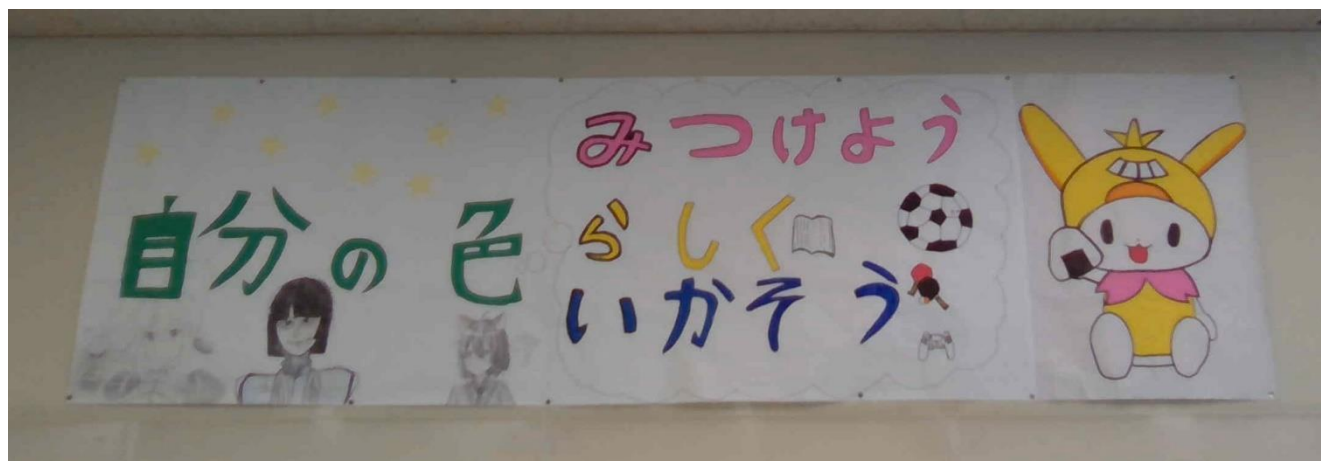 自分の色
みつけよう
らしく
いかそう